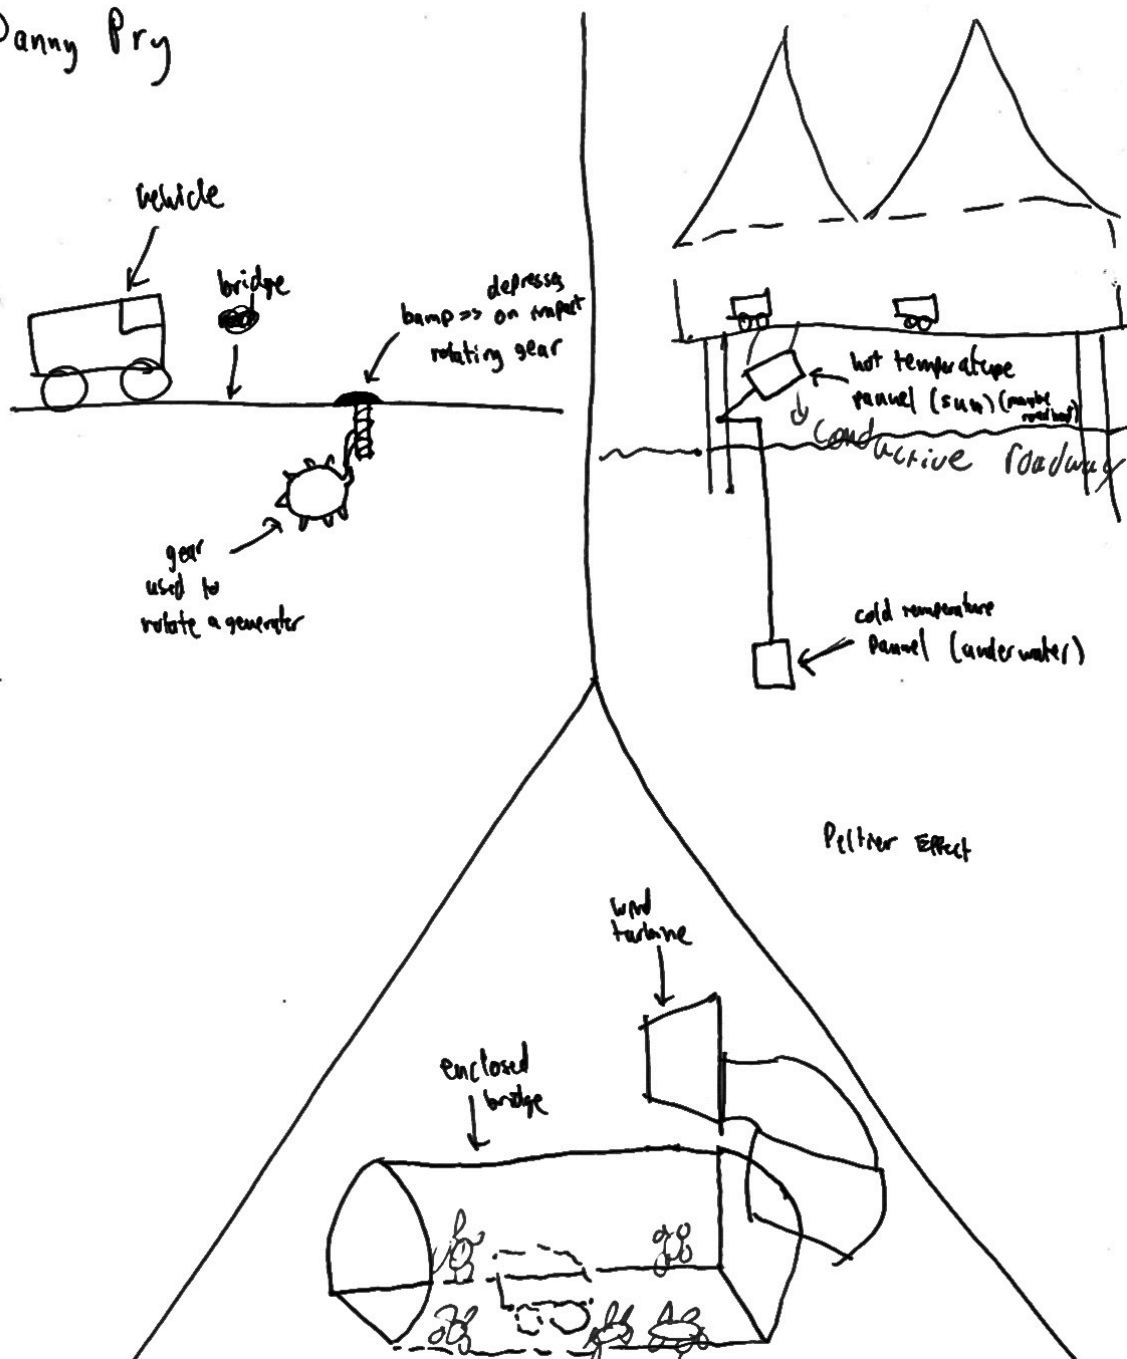 Danny Pry
vehicle
bridge
depresses
bump => on impact
rotating gear
gear
used to
rotate a generator
hot temperature
pannel (sun) (maybe
roadway)
conductive roadway
cold temperature
pannel (underwater)
Peltier Effect
wind
turbine
enclosed
bridge